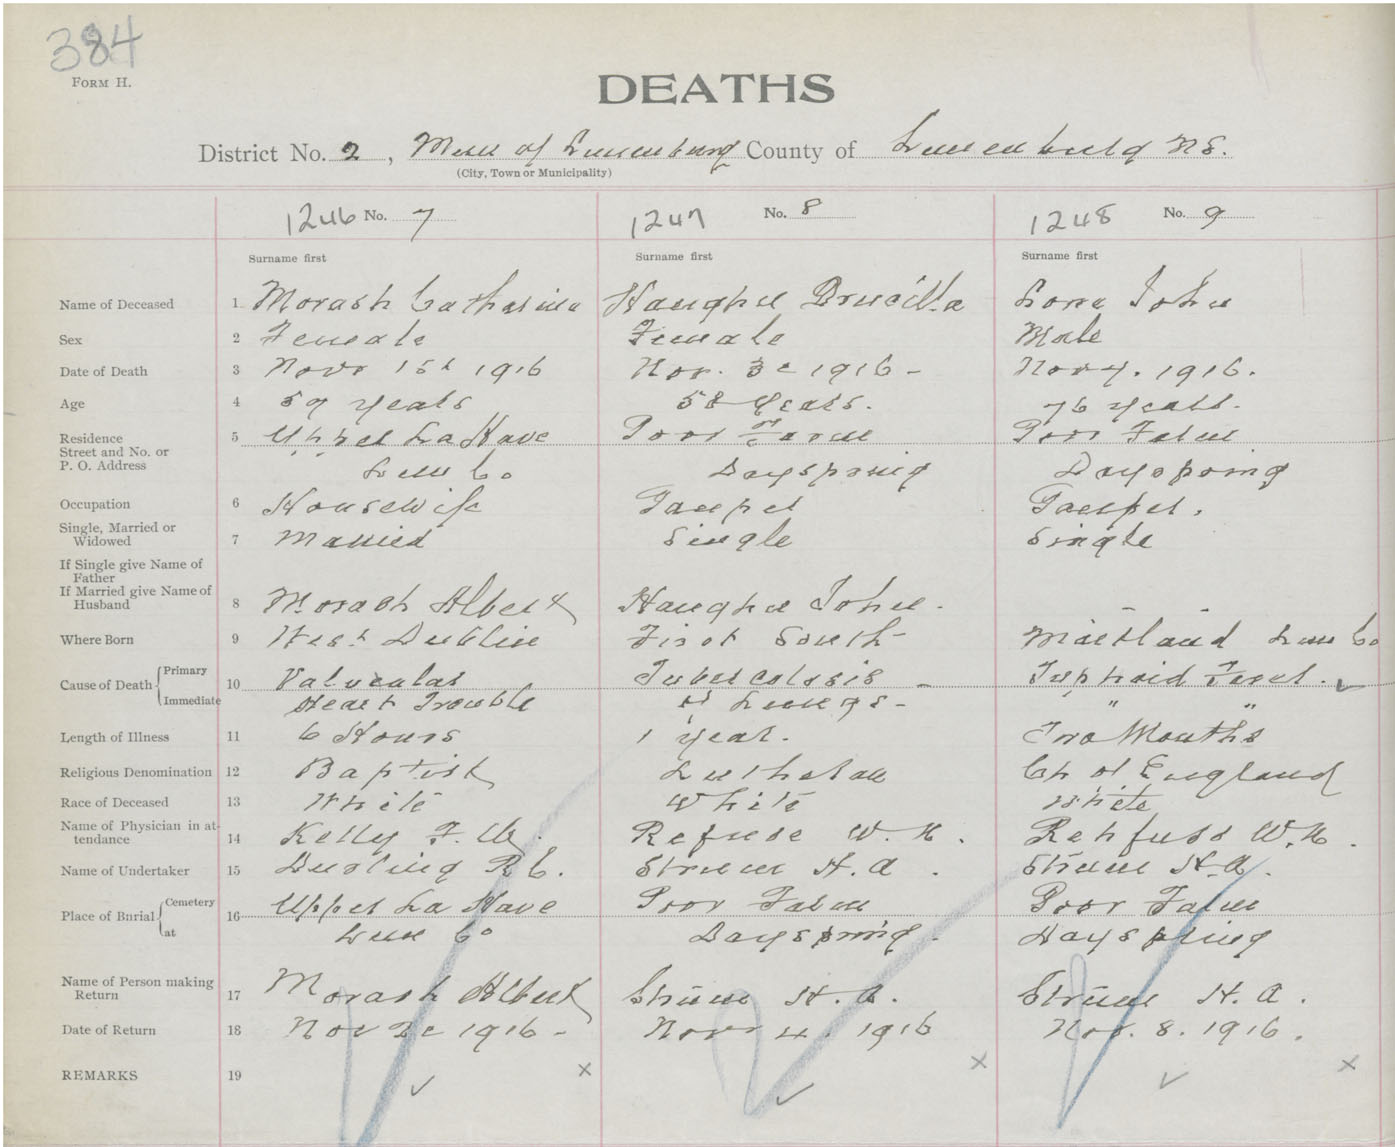 384
FORM H.
DEATHS
District No. 2, Mun of Lunenburg County of Lunenburg NS.
(City, Town or Municipality)
1246 No. 7 1247 No. 8 1248 No. 9
Surname first Surname first Surname first
Name of Deceased 1 Morash Catharine Haughn Drucilla John
Sex 2 Female Female Male
Date of Death 3 Novr 1st 1916 Nov. 3d 1916 - Nov 7. 1916.
Age 4 59 years 58 Years. 76 years.
Residence 5 Upper LaHave Poor Farm Poor Farm
Street and No. or
P. O. Address Lun Co Dayspring Dayspring
Occupation 6 Housewife Pauper Pauper.
Single, Married or
Widowed 7 Married Single Single
If Single give Name of
Father
If Married give Name of
Husband 8 Morash Albert Haughn John.
Where Born 9 West Dublin First South Maitland Lun Co
Cause of Death Primary 10 Valvular Tuberculosis - Typhoid Fever.
Immediate Heart Trouble of Lungs - " "
Length of Illness 11 6 Hours 1 year. Two Months
Religious Denomination 12 Baptist Lutheran Ch of England
Race of Deceased 13 White White White
Name of Physician in at-
tendance 14 Kelly F. W. Refuse W. H. Rehfuss W. H.
Name of Undertaker 15 Durling R C. Strum H. A. Strum H. A.
Place of Burial Cemetery 16 Upper La Have Poor Farm Poor Farm
at Lun Co Dayspring. Dayspring
Name of Person making
Return 17 Morash Albert Strum H. A. Strum H. A.
Date of Return 18 Nov 2d 1916 - Novr 4. 1916 Nov. 8. 1916.
REMARKS 19 x x x